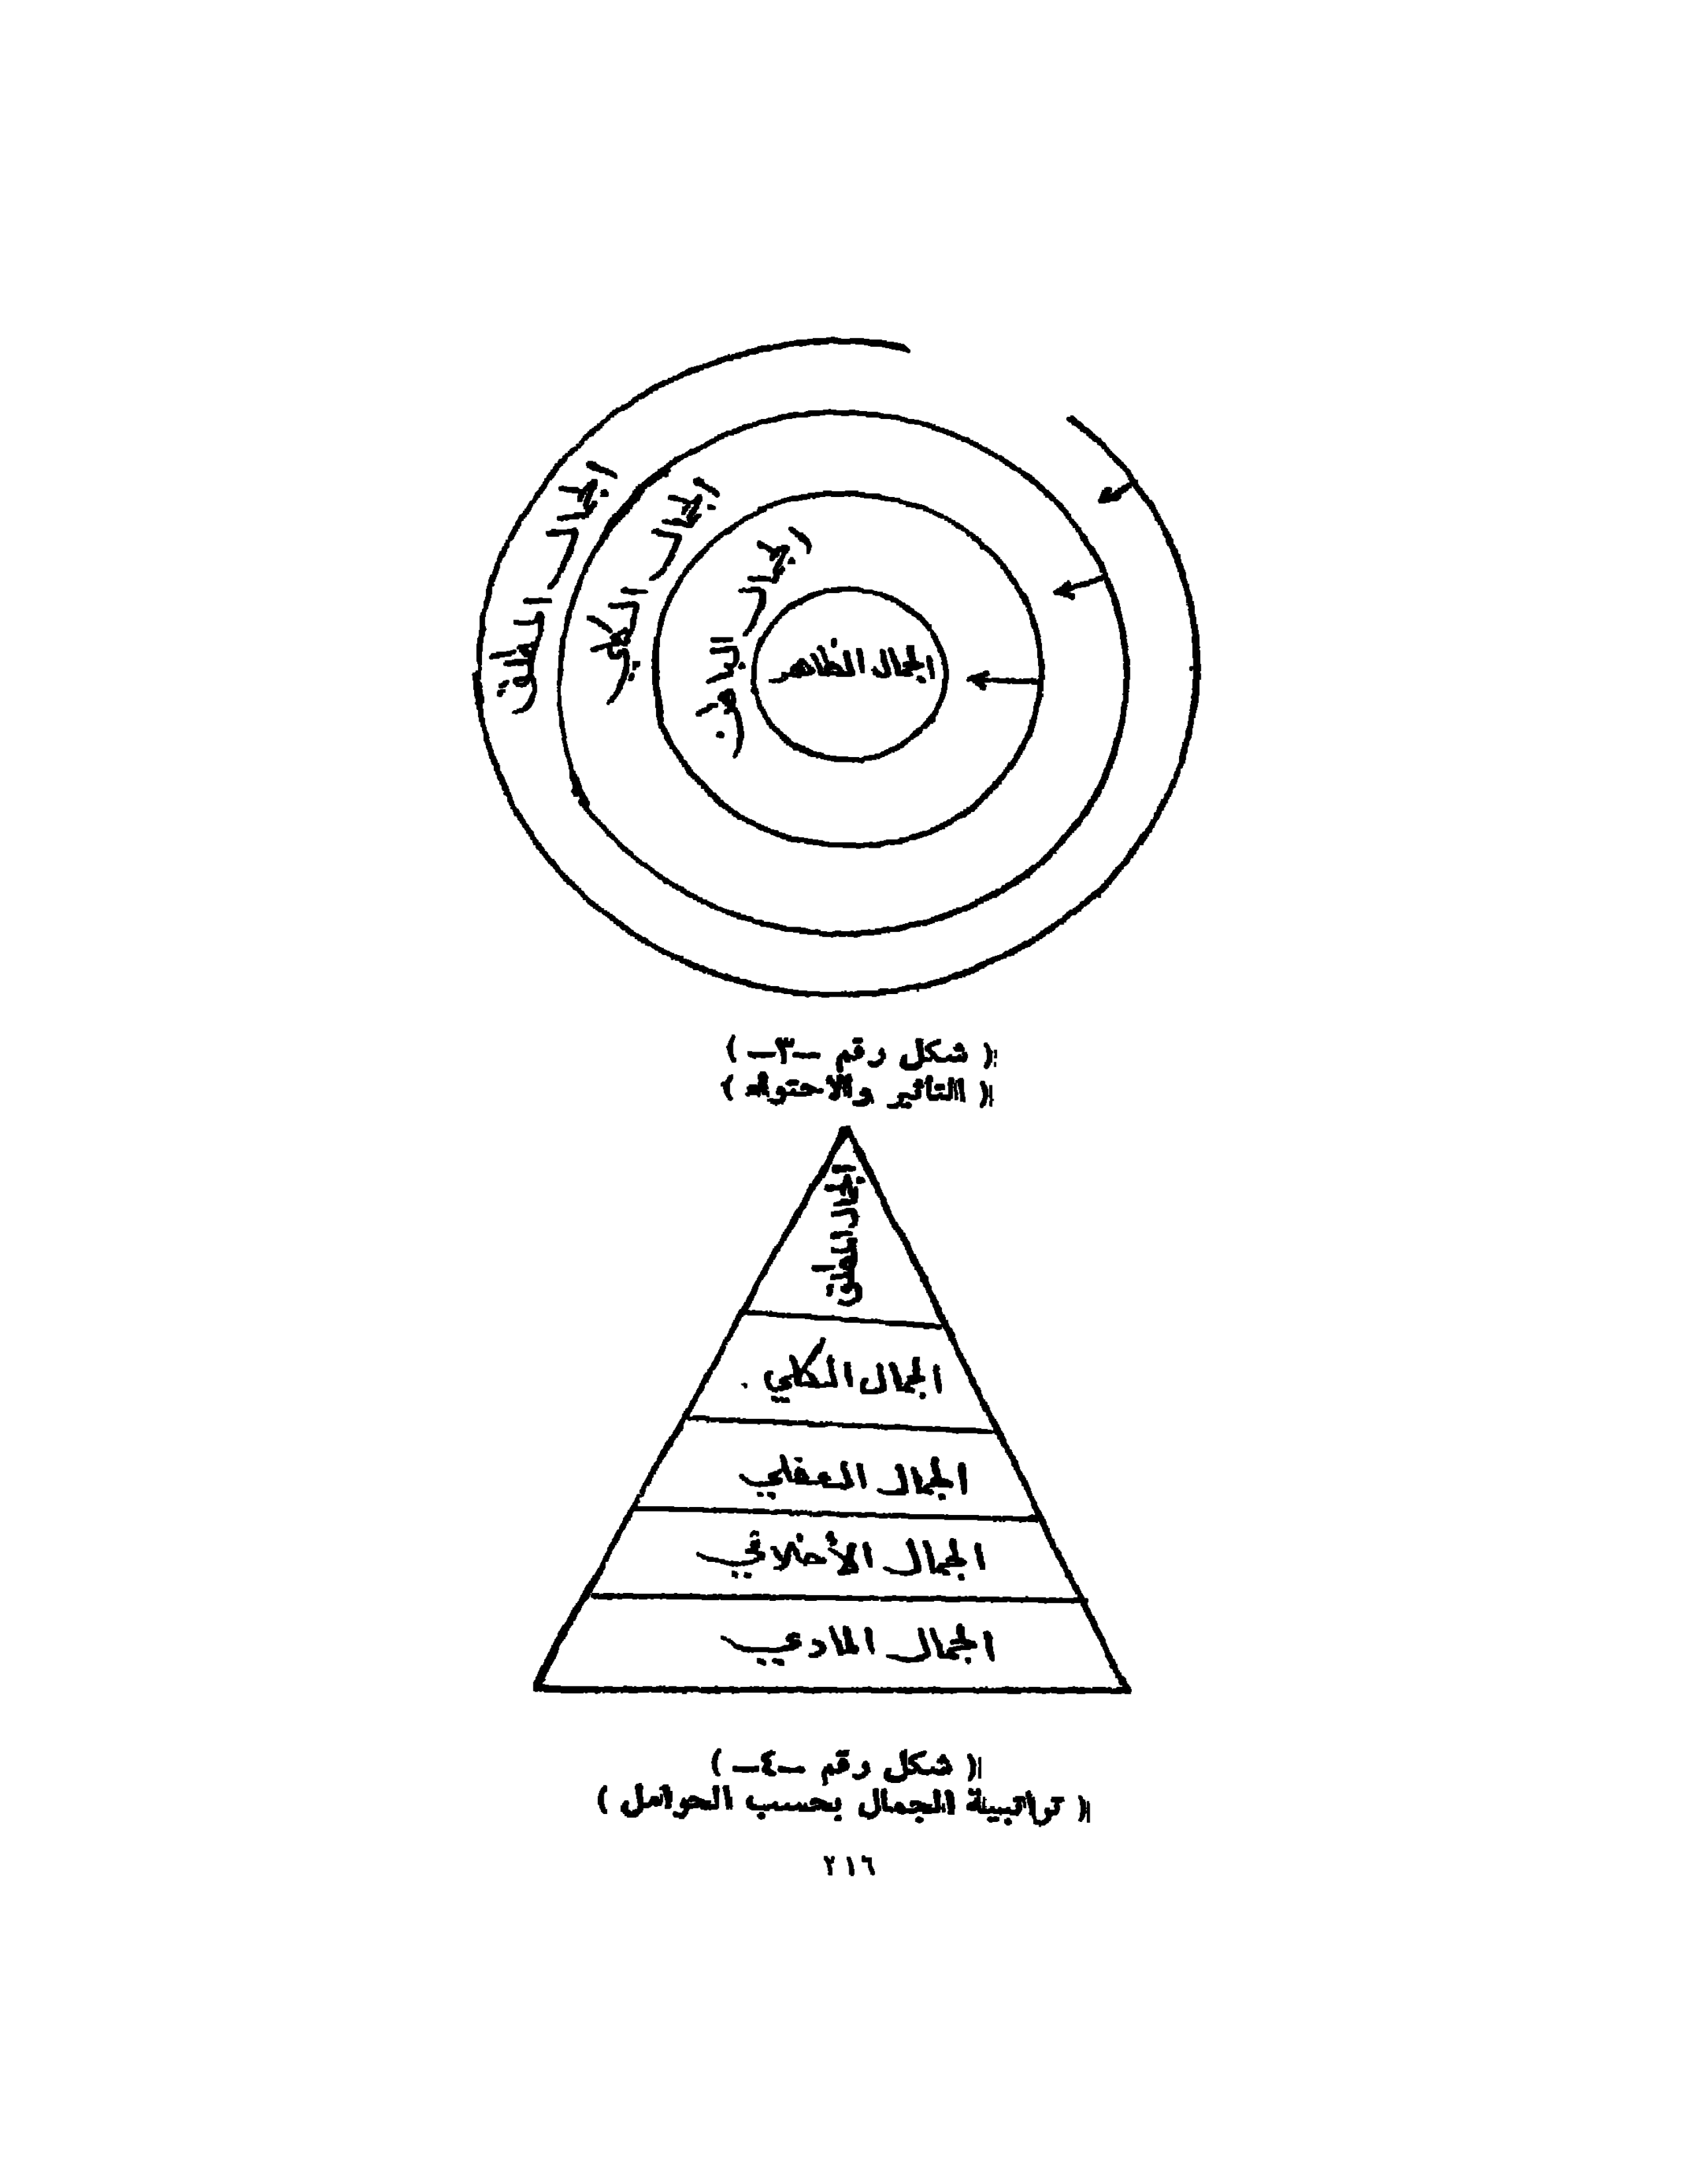 الجمال المطلق
الجمال الكلي
الجمال الباطن
الجمال الظاهر
( شكل رقم -٣- )
( التأثير والاحتواء )
الجمال المطلق
الجمال الكلي .
الجمال العقلي
الجمال الأخلاقي
الجمال المادي
( شكل رقم -٤- )
( تراتبية الجمال بحسب الحوامل )
٢١٦